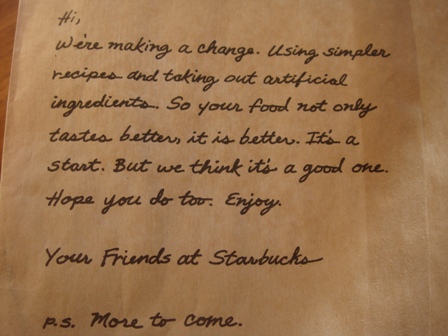 Hi,
We're making a change. Using simpler
recipes and taking out artificial
ingredients. So your food not only
tastes better, it is better. It's a
start. But we think it's a good one.
Hope you do too. Enjoy.
Your Friends at Starbucks
p.s. More to come.